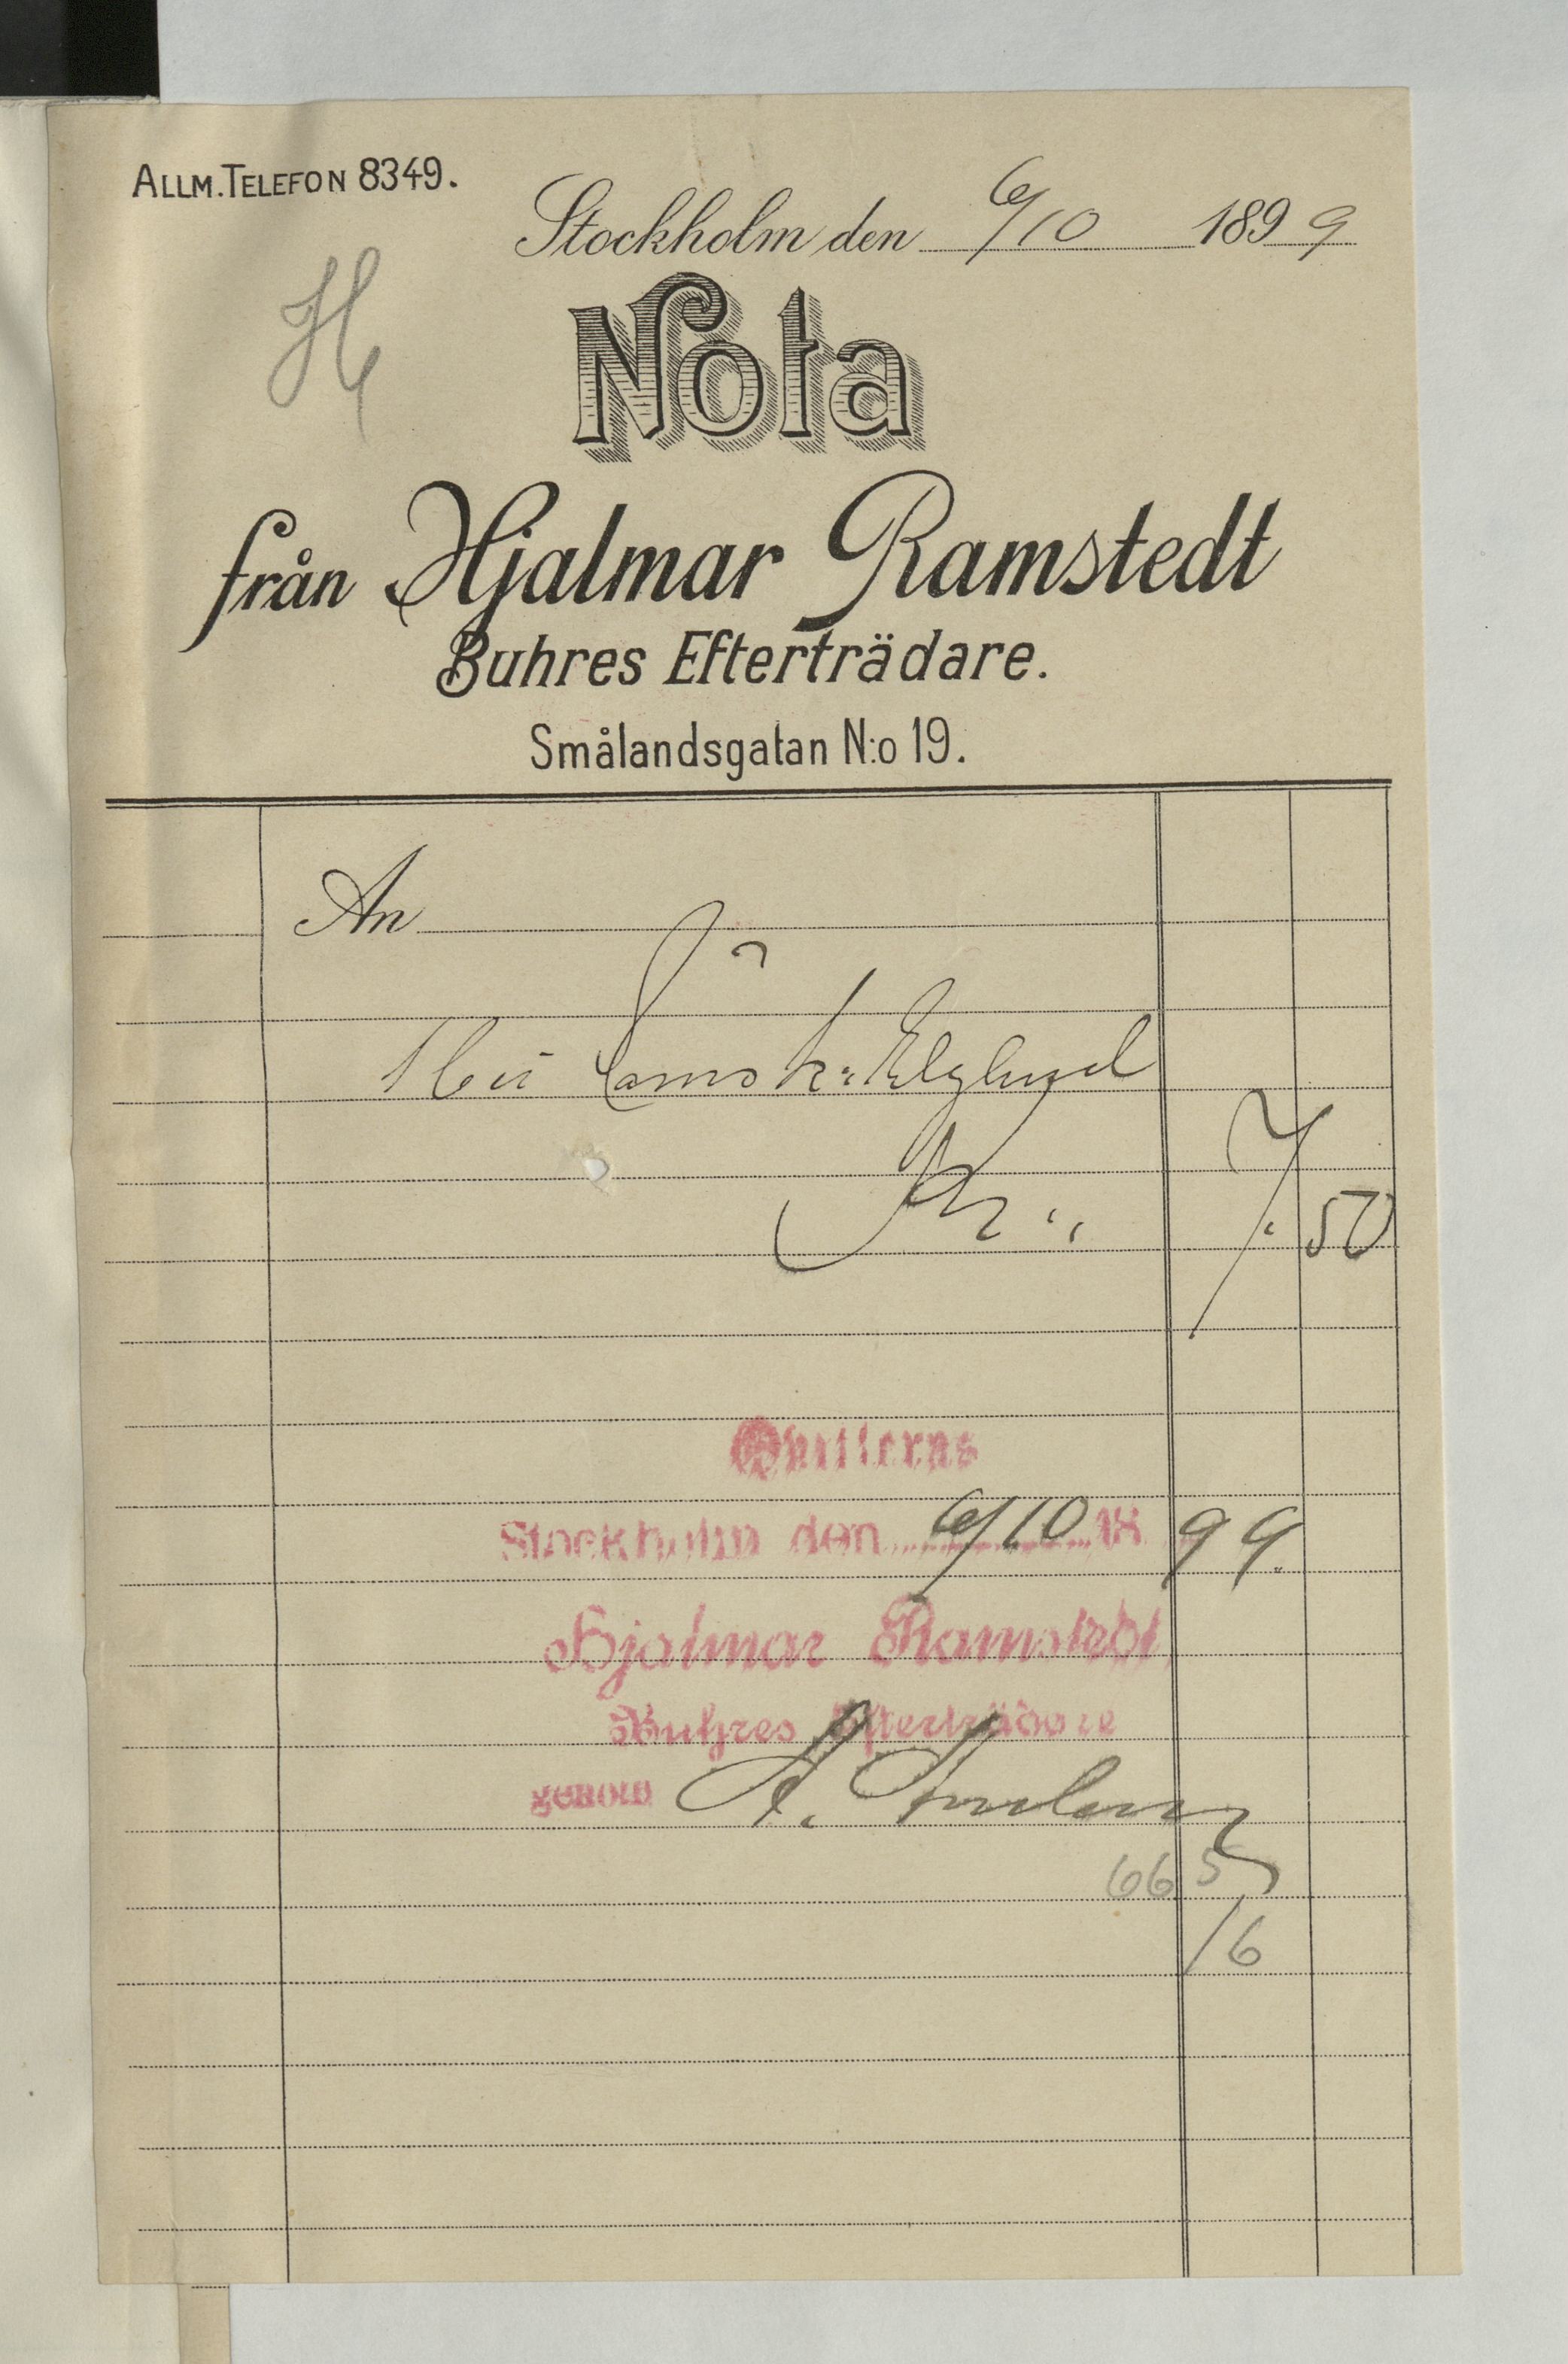 ALLM. TELEFON 8349.
Stockholm den 6/10 1899
H
Nota
från Hjalmar Ramstedt
Buhres Efterträdare.
Smålandsgatan N:o 19.
An
Kr. 7. 50
Qvitteras
Stockholm den 6/10 18 99.
Hjalmar Ramstedt
Buhres Efterträdare
genom A.
665
/6